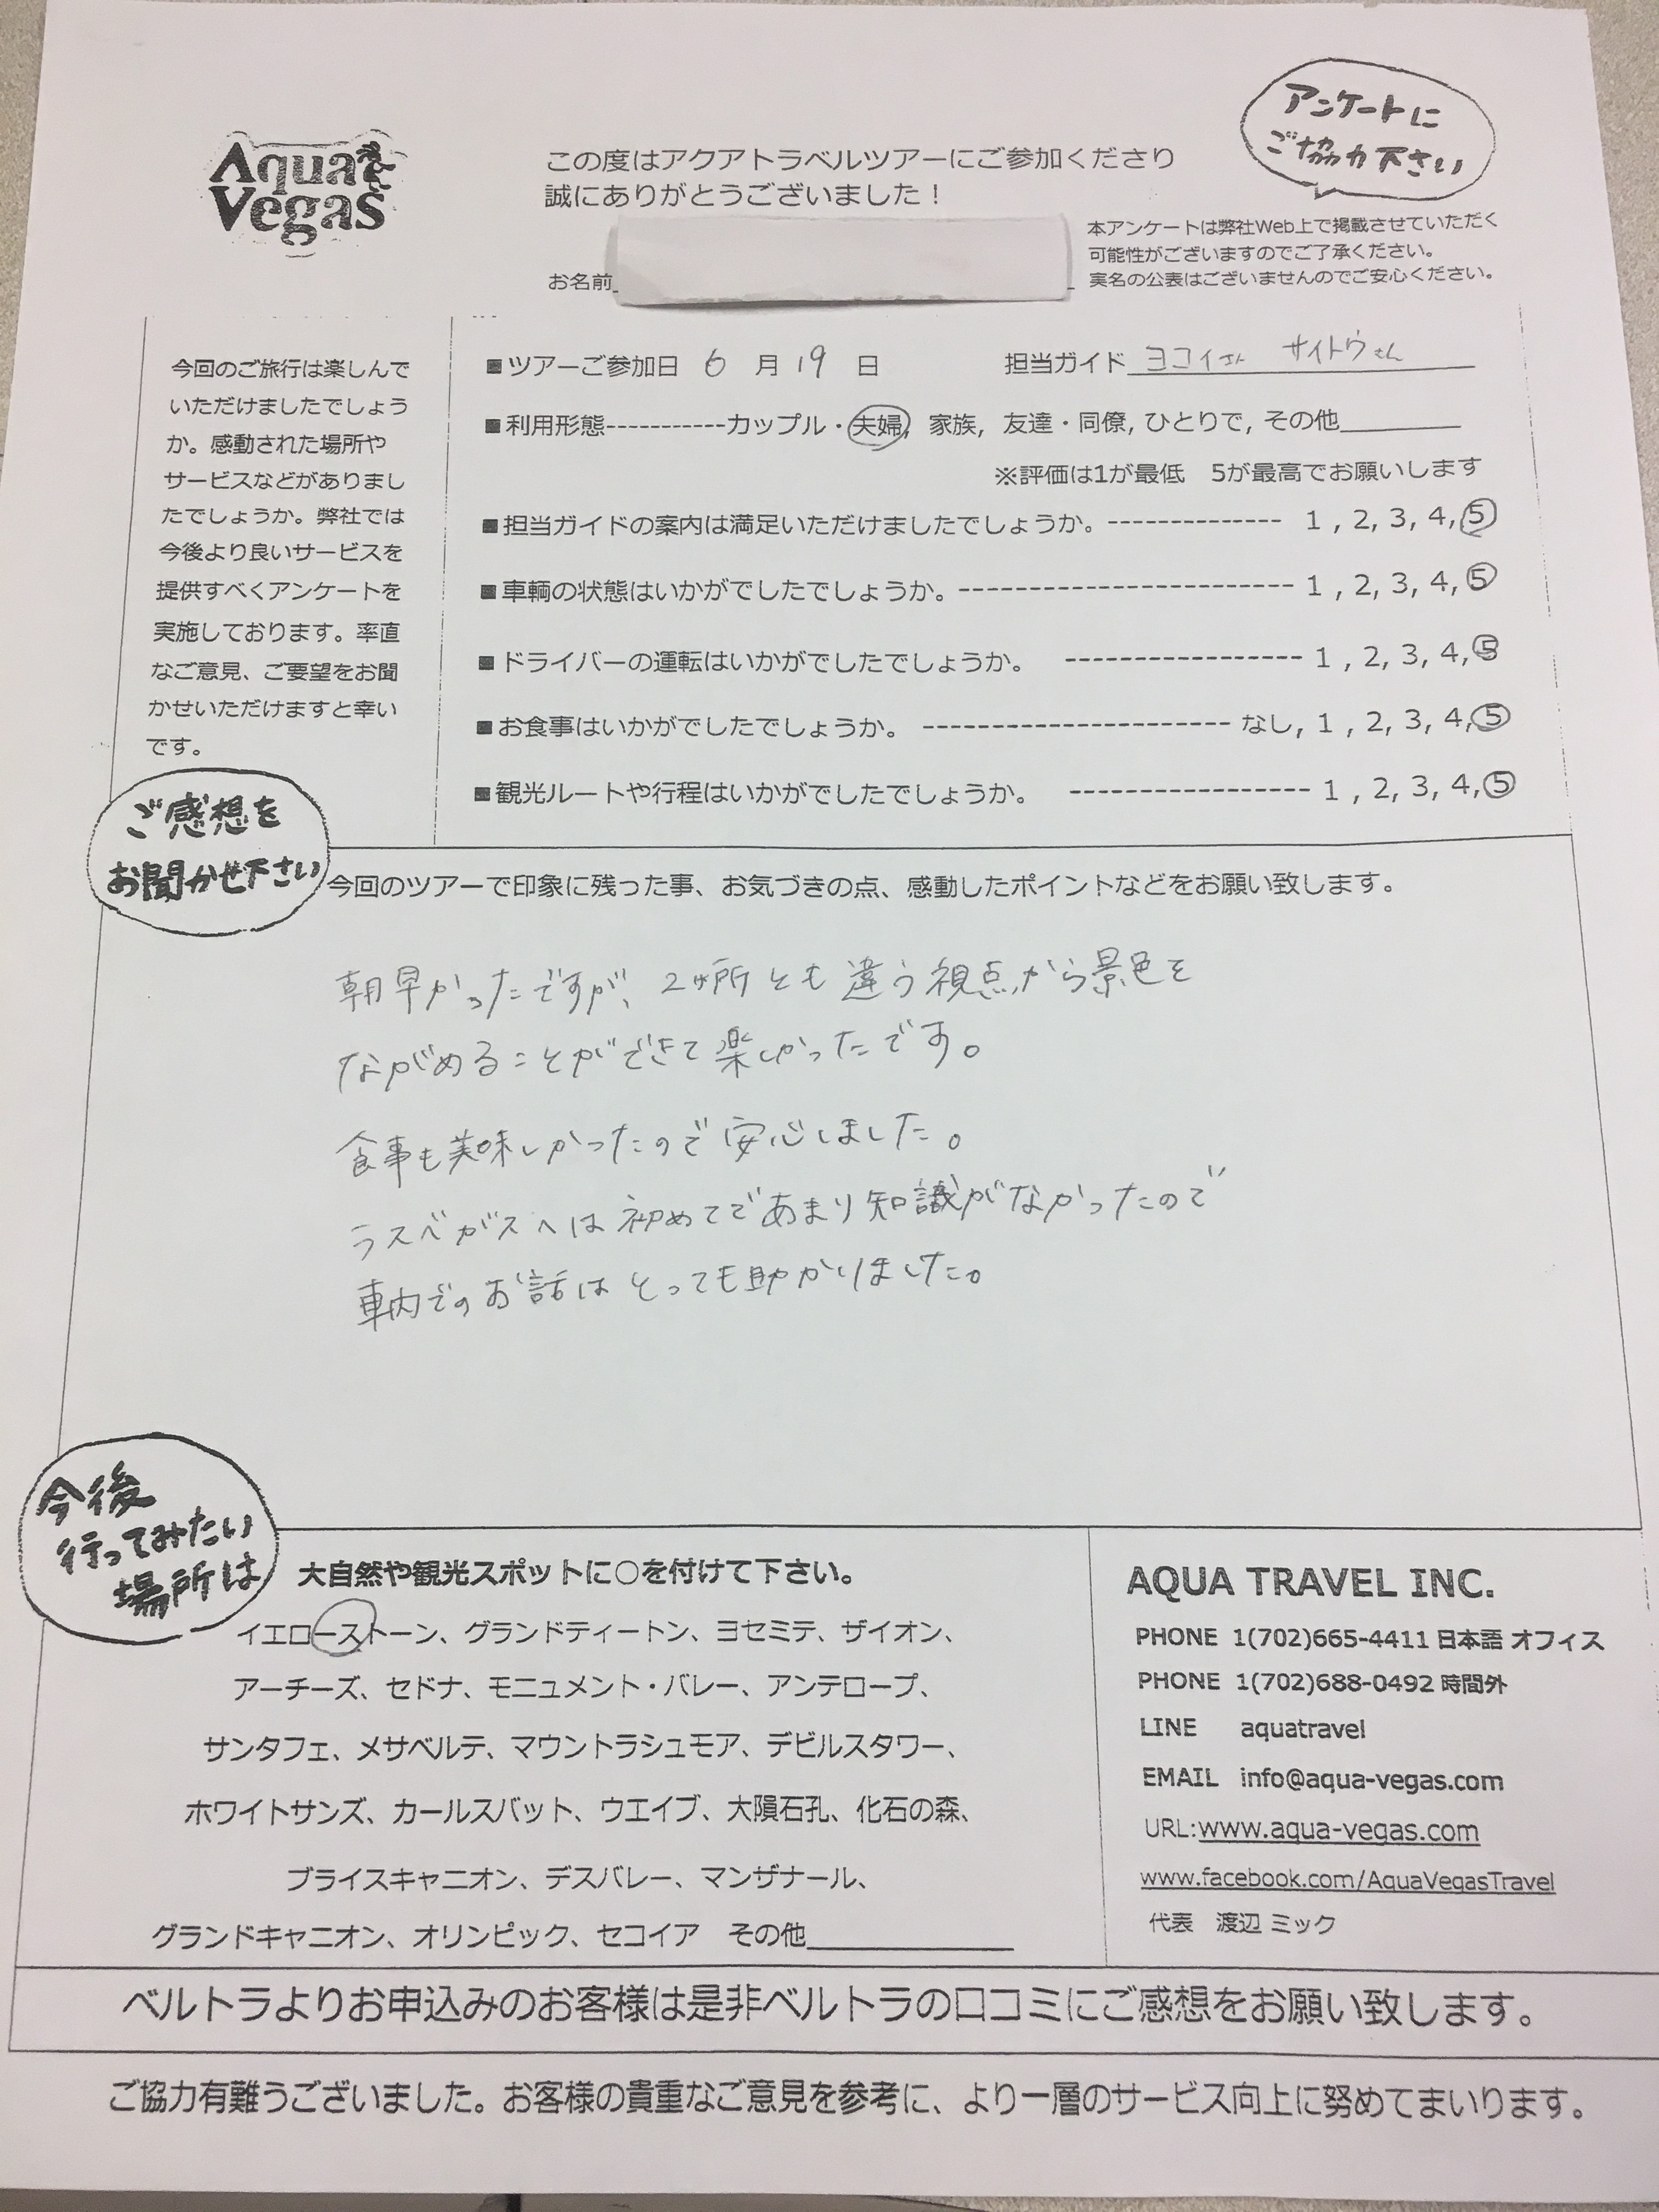 Aqua
Vegas
この度はアクアトラベルツアーにご参加くださり
誠にありがとうございました！
アンケートに
ご協力下さい
本アンケートは弊社Web上で掲載させていただく
可能性がございますのでご了承ください。
実名の公表はございませんのでご安心ください。
お名前
今回のご旅行は楽しんで
いただけましたでしょう
か。感動された場所や
サービスなどがありまし
たでしょうか。弊社では
今後より良いサービスを
提供すべくアンケートを
実施しております。率直
なご意見、ご要望をお聞
かせいただけますと幸い
です。
■ツアーご参加日 6 月 19 日 担当ガイド ヨコイさん サイトウさん
■利用形態-----------カップル・夫婦, 家族, 友達・同僚, ひとりで, その他
※評価は1が最低 5が最高でお願いします
■担当ガイドの案内は満足いただけましたでしょうか。-------------- 1 , 2, 3, 4, 5
■車輌の状態はいかがでしたでしょうか。----------------------- 1 , 2, 3, 4, 5
■ドライバーの運転はいかがでしたでしょうか。 ----------------- 1 , 2, 3, 4, 5
■お食事はいかがでしたでしょうか。 ---------------------- なし, 1 , 2, 3, 4, 5
■観光ルートや行程はいかがでしたでしょうか。 ----------------- 1 , 2, 3, 4, 5
ご感想を
お聞かせ下さい
今回のツアーで印象に残った事、お気づきの点、感動したポイントなどをお願い致します。
朝早かったですが、2ヶ所とも違う視点から景色を
ながめることができて楽しかったです。
食事も美味しかったので安心しました。
ラスベガスへは初めてであまり知識がなかったので
車内でのお話はとっても助かりました。
今後
行ってみたい
場所は
大自然や観光スポットに○を付けて下さい。
イエローストーン、グランドティートン、ヨセミテ、ザイオン、
アーチーズ、セドナ、モニュメント・バレー、アンテロープ、
サンタフェ、メサベルテ、マウントラシュモア、デビルスタワー、
ホワイトサンズ、カールスバット、ウエイブ、大隕石孔、化石の森、
ブライスキャニオン、デスバレー、マンザナール、
グランドキャニオン、オリンピック、セコイア その他
AQUA TRAVEL INC.
PHONE 1(702)665-4411 日本語 オフィス
PHONE 1(702)688-0492 時間外
LINE aquatravel
EMAIL info@aqua-vegas.com
URL:www.aqua-vegas.com
www.facebook.com/AquaVegasTravel
代表 渡辺 ミック
ベルトラよりお申込みのお客様は是非ベルトラの口コミにご感想をお願い致します。
ご協力有難うございました。お客様の貴重なご意見を参考に、より一層のサービス向上に努めてまいります。